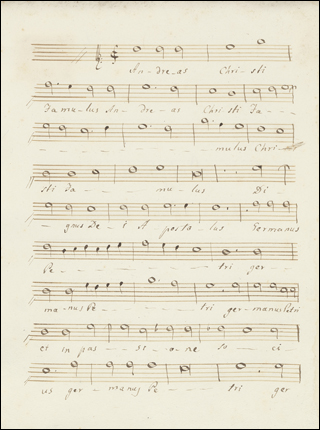 An-dre-as Chri-sti
Famulus An-dre-as Christi Fa-
- - - - mulus Chri-
sti Fa- - - mu-lus Di
gnus De-i A posto-lus Germanus
Pe- - - - - tri ger-
ma-nus Pe- - - tri germanus Petri
et in pas-si-o-ne so-ci
us ger-manus Pe- tri ger